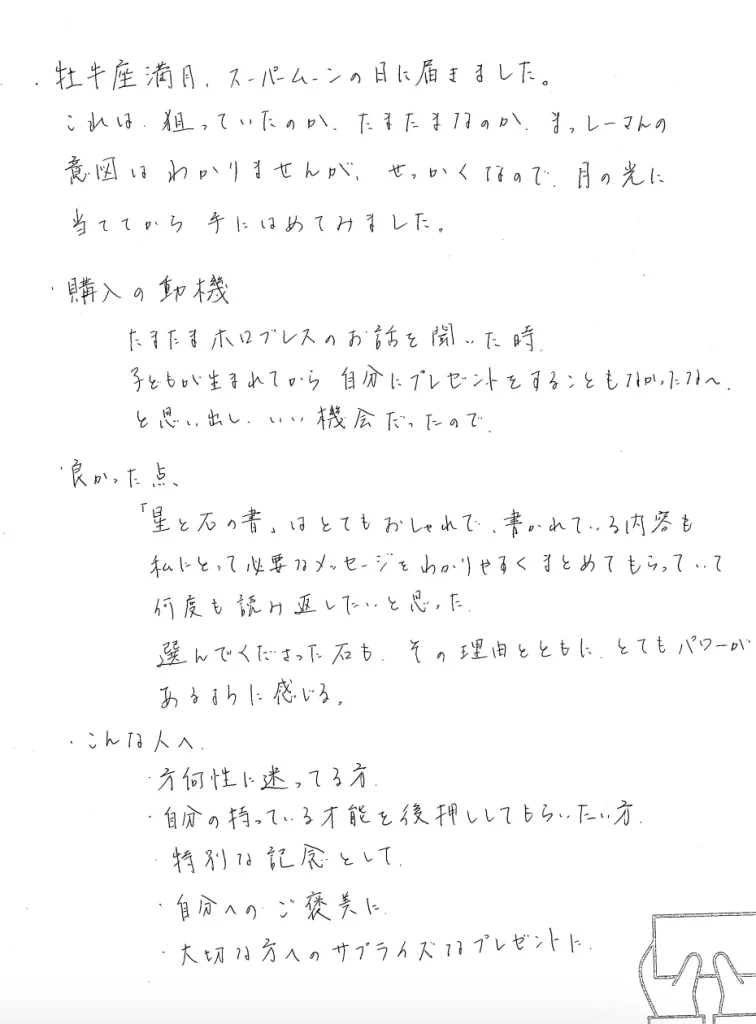 ・牡牛座満月、スーパームーンの日に届きました。
これは、狙っていたのか、たまたまなのか、まっしーさんの
意図はわかりませんが、せっかくなので、月の光に
当ててから 手にはめてみました。
・購入の動機
たまたまホロブレスのお話を聞いた時、
子どもが生まれてから 自分にプレゼントをすることもなかったな〜、
と思い出し、いい機会だったので、
・良かった点、
「星と石の書」はとてもおしゃれで、書かれている内容も
私にとって必要なメッセージをわかりやすくまとめてもらっていて
何度も読み返したいと思った、
選んでくださった石も、その理由とともに、とてもパワーが
あるように感じる。
・こんな人へ、
・方何性に迷ってる方、
・自分の持っている才能を後押ししてもらいたい方、
・特別な記念として、
・自分へのご褒美に、
・大切な方へのサプライズなプレゼントに、